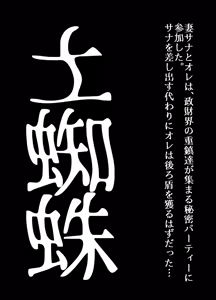 妻サナとオレは、政財界の重鎮達が集まる秘密パーティーに
参加した。
サナを差し出す代わりにオレは後ろ盾を獲るはずだった…
土蜘蛛